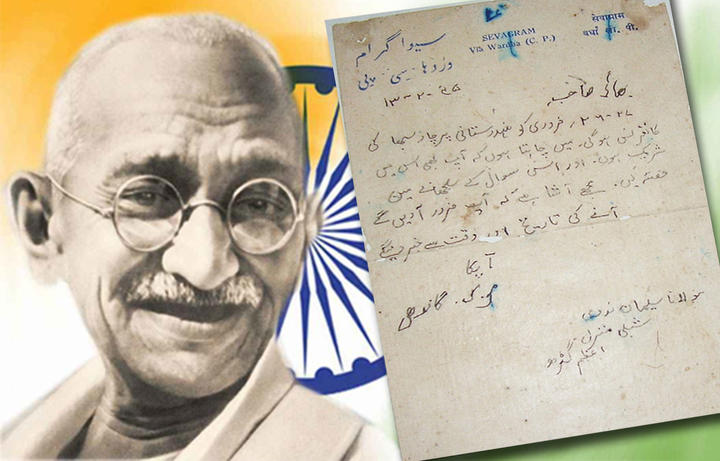 سیوا گرام
وردھا سی پی
SEVAGRAM
Via Wardha (C. P.)
सेवाग्राम
वर्धा सी. पी.
بھائی صاحب
فروری کو ہندوستانی پرچار سبھا کی
کانفرنس ہوگی۔ میں چاہتا ہوں کہ آپ بھی اس میں
شریک ہوں۔ اور اس سوال کے سلجھانے میں
حصہ لیں۔ مجھے آشا ہے کہ آپ ضرور آویں گے
آنے کی تاریخ اور وقت سے خبر دیں گے
آپکا
م۔ ک۔ گاندھی
مولانا سلیمان ندوی
شبلی منزل
اعظم گڑھ